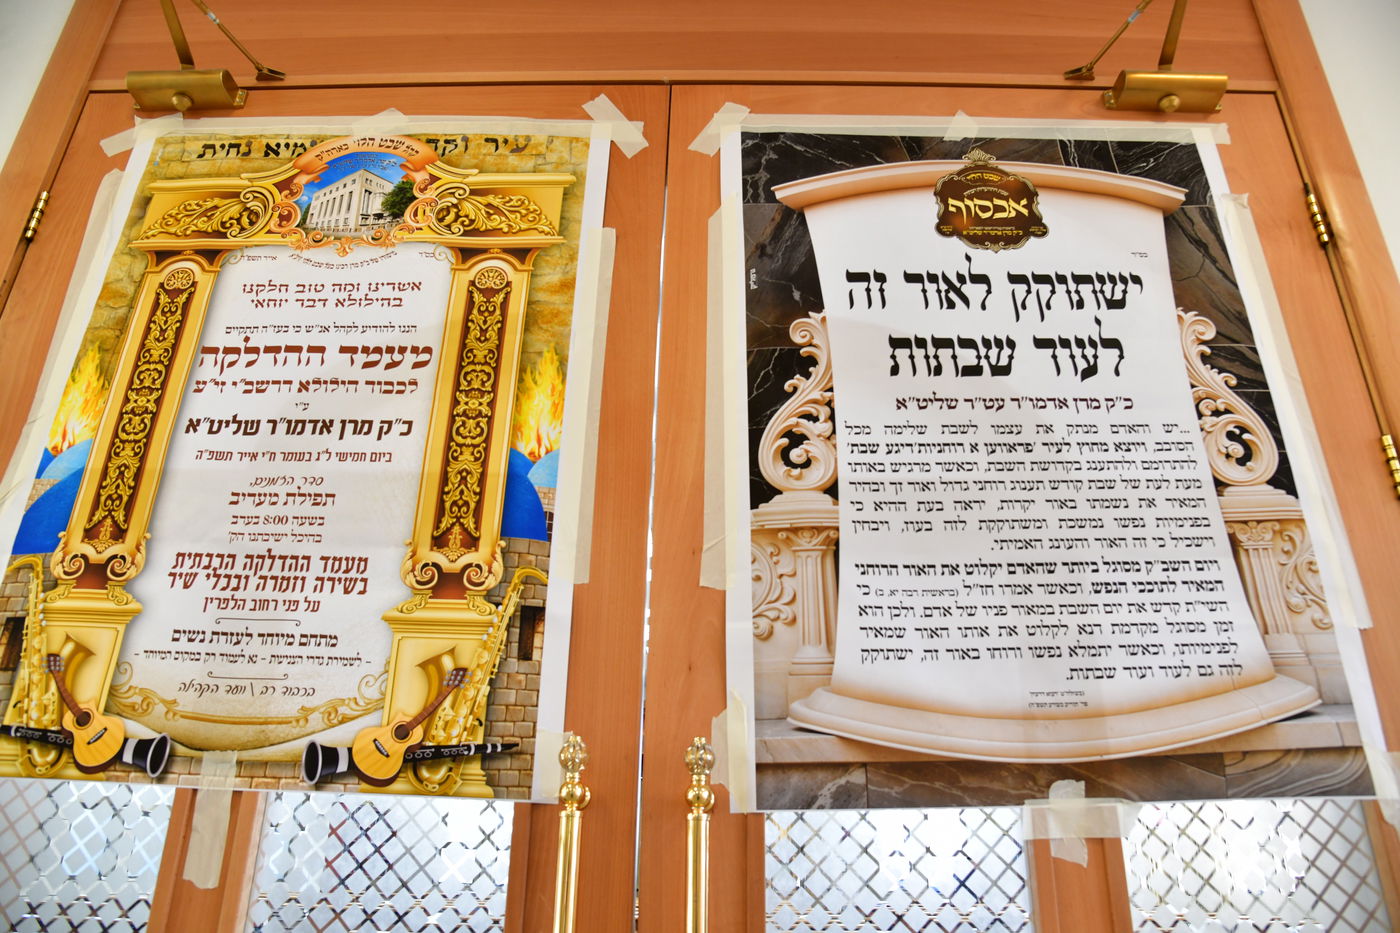 עיר וקד מיא נחית
קהל שבט הלוי בארה"ק
אייר תשפ"ה
בס"ד
אשרינו ומה טוב חלקנו
בהילולא דבר יוחאי
הננו להודיע לקהל אנ"ש כי בעז"ה תתקיים
מעמד ההדלקה
לכבוד הילולא דרשב"י זי"ע
ע"י
כ"ק מרן אדמו"ר שליט"א
ביום חמישי ל"ג בעומר ח"י אייר תשפ"ה
סדר הזמנים,
תפילת מעריב
בשעה 8:00 בערב
בהיכל ישיבתנו הק'
מעמד ההדלקה הרבתית
בשירה וזמרה ובכלי שיר
על פני רחוב הלפרין
מתחם מיוחד לעזרת נשים
- לשמירת גדרי הצניעות - נא לעמוד רק במקום המיוחד -
בכבוד רב \ וועד הקהילה
שבט הלוי
אבסוף
בס"ד
ישתוקק לאור זה
לעוד שבתות
כ"ק מרן אדמו"ר עט"ר שליט"א
...יש והאדם מנתק את עצמו לשבת שלימה מכל
הסובב, ויוצא מחוץ לעיר 'פראווען א רוחניות'דיגע שבת'
להתרומם ולהתענג בקדושת השבת, וכאשר מרגיש באותו
מעת לעת של שבת קודש תענוג רוחני גדול ואור זך ובהיר
המאיר את נשמתו באור יקרות, יראה בעת ההיא כי
בפנימיות נפשו נמשכת ומשתוקקת לזה בעוז, ויבחין
וישכיל כי זה האור והעונג האמיתי.
ויום השב"ק מסוגל ביותר שהאדם יקלוט את האור הרוחני
המאיר לתוככי הנפש, וכאשר אמרו חז"ל (בראשית רבה יא, ב) כי
השי"ת קדש את יום השבת במאור פניו של אדם. ולכן הוא
זמן מסוגל מקדמת דנא לקלוט את אותו האור שמאיר
לפנימיותו, וכאשר יתמלא נפשו ורוחו באור זה, ישתוקק
לזה גם לעוד ועוד שבתות.